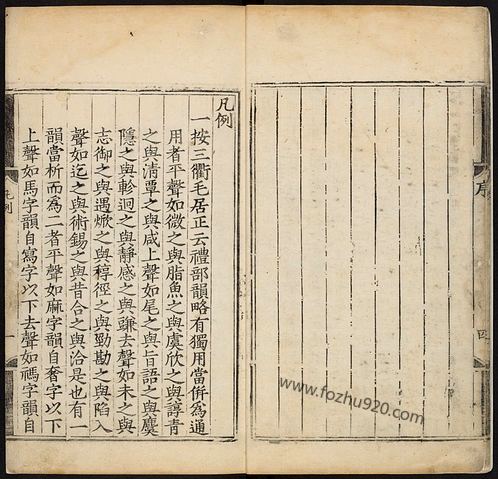 序
四
凡例
一按三衢毛居正云禮部韻略有獨用當併爲通
用者平聲如微之與脂魚之與虞欣之與諄青
之與清覃之與咸上聲如尾之與旨語之與麌
隱之與軫迥之與靜感之與豏去聲如未之與
志御之與遇焮之與稕徑之與勁勘之與陷入
聲如迄之與術錫之與昔合之與洽是也有一
韻當析而爲二者平聲如麻字韻自奢字以下
上聲如馬字韻自寫字以下去聲如禡字韻自
凡例
一
www.fozhu920.com